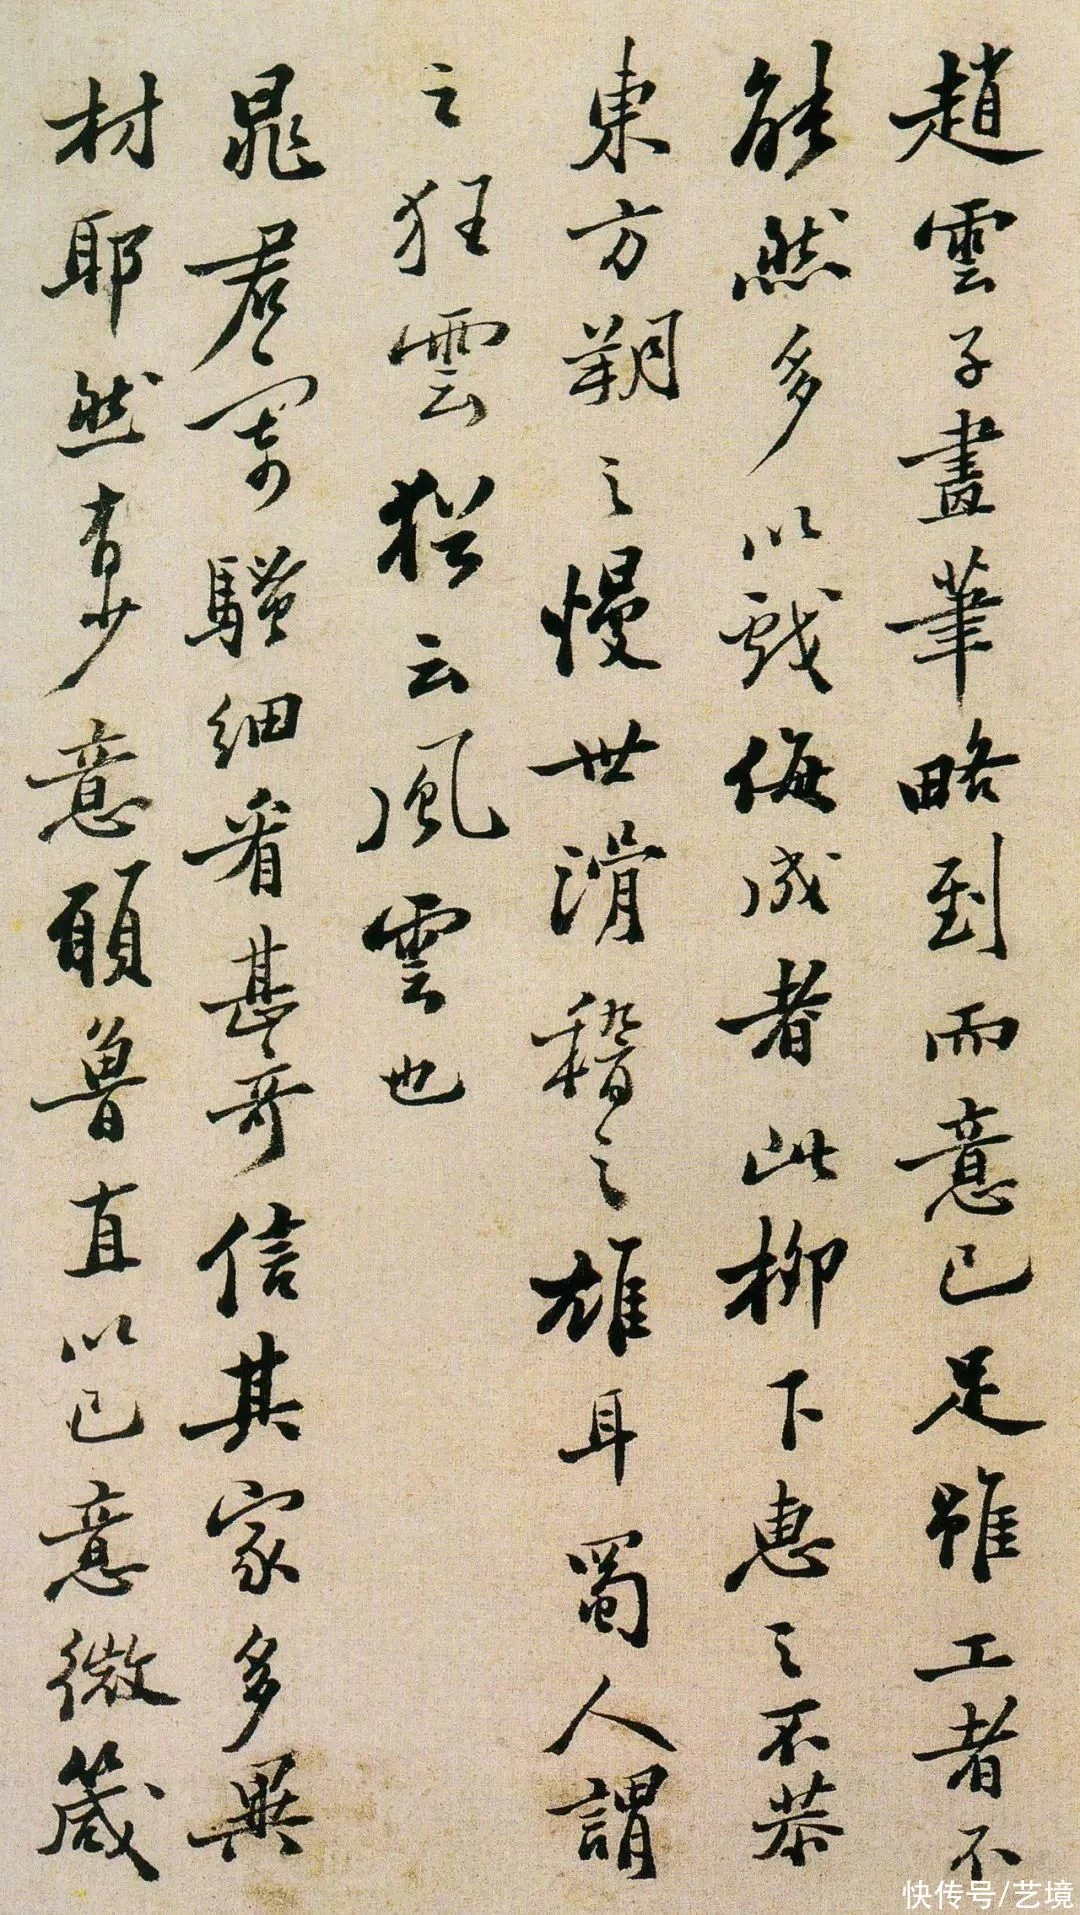 趙雲子畫筆略到而意已足雖工者不
能然多以戲侮成者此柳下惠之不恭
東方朔之慢世滑稽之雄耳蜀人謂
之狂雲猶云風雲也
晁君寄騷細看甚奇信其家多異
材耶然有少意願魯直以己意微箴
快传号/艺境